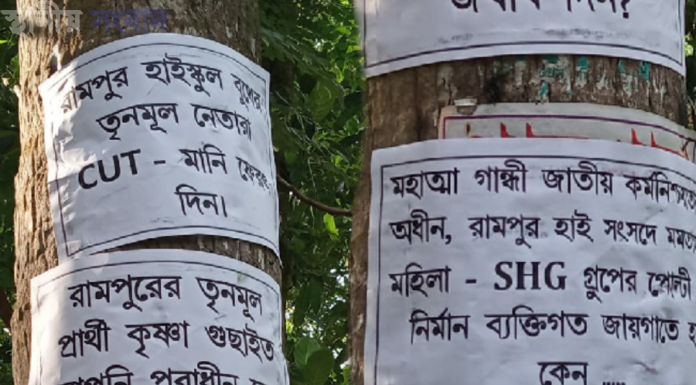 স্থানীয় সংবাদ
রামপুর হাইস্কুল বুথের
তৃনমূল নেতারা
CUT - মানি ফেরৎ
দিন।
রামপুরের তৃনমূল
প্রার্থী কৃষ্ণা গুছাইত
আপনি পরাধীন
জবাব দিন?
মহাত্মা গান্ধী জাতীয় কর্মনিশ্চয়তা
অধীন, রামপুর হাই সংসদে
মহিলা - SHG গ্রুপের পোল্ট্রী
নির্মান ব্যক্তিগত জায়গাতে
কেন .....